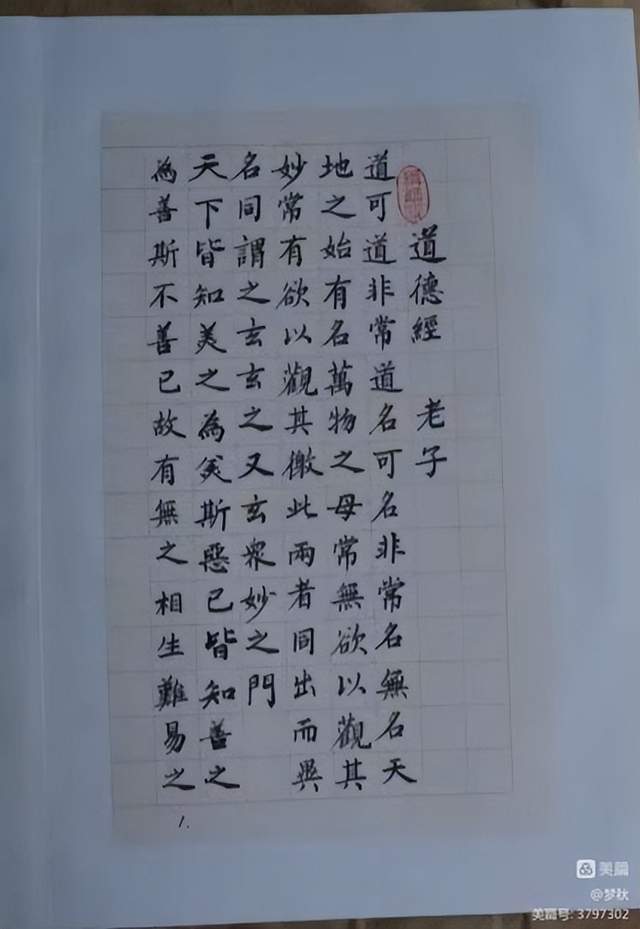 道德經 老子
道可道非常道名可名非常名無名天
地之始有名萬物之母常無欲以觀其
妙常有欲以觀其徼此兩者同出而異
名同謂之玄玄之又玄衆妙之門
天下皆知美之為美斯惡已皆知善之
為善斯不善已故有無之相生難易之
1.
美篇
@梦秋
美篇号: 3797302